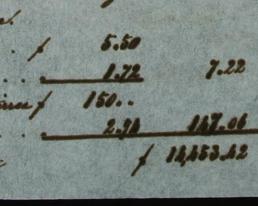 . . ƒ 5.50
. . . 1.72 7.22
ƒ 150..
. . 2.94 147.06
ƒ 14,453.42